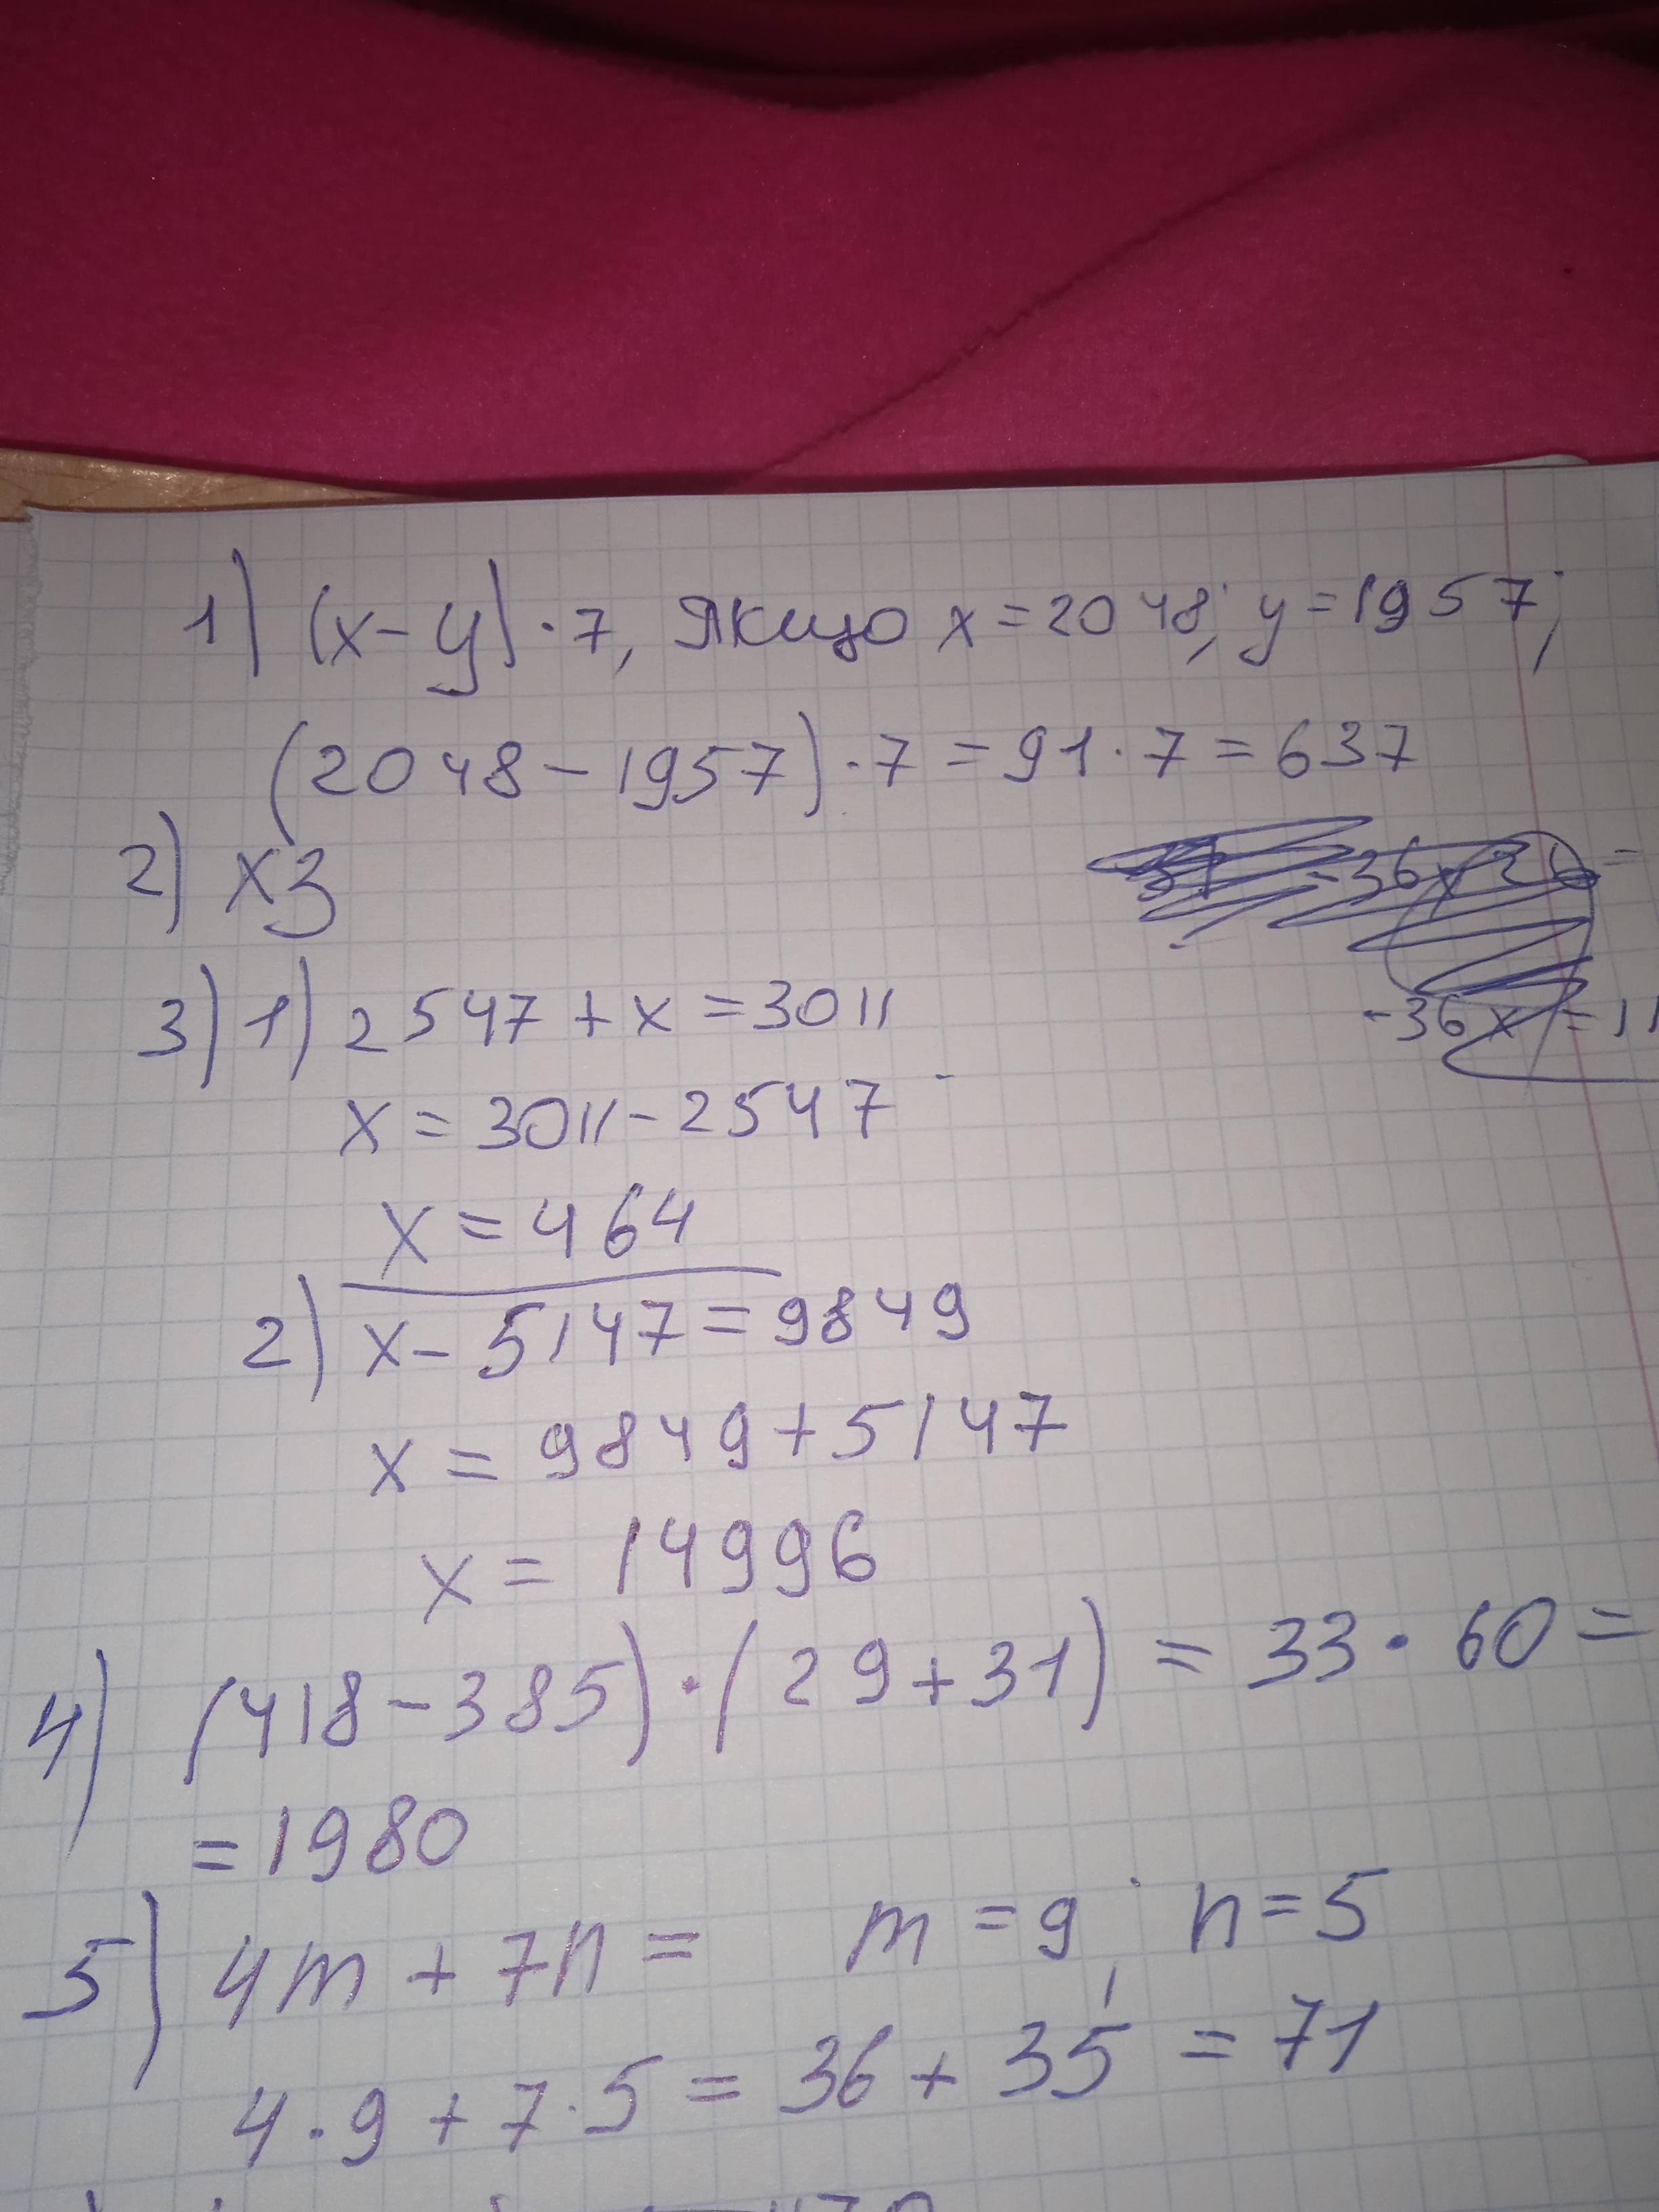 1) (x-y)·7, Якщо x=2048; y=1957;
(2048-1957)·7=91·7=637
2) хз
3) 1) 2547+x=3011
-36x=11
x=3011-2547
x=464
2) x-5147=9849
x=9849+5147
x=14996
4) (418-385)·(29+31)=33·60=
=1980
5) 4m+7n= m=9; n=5
4·9+7·5=36+35=71